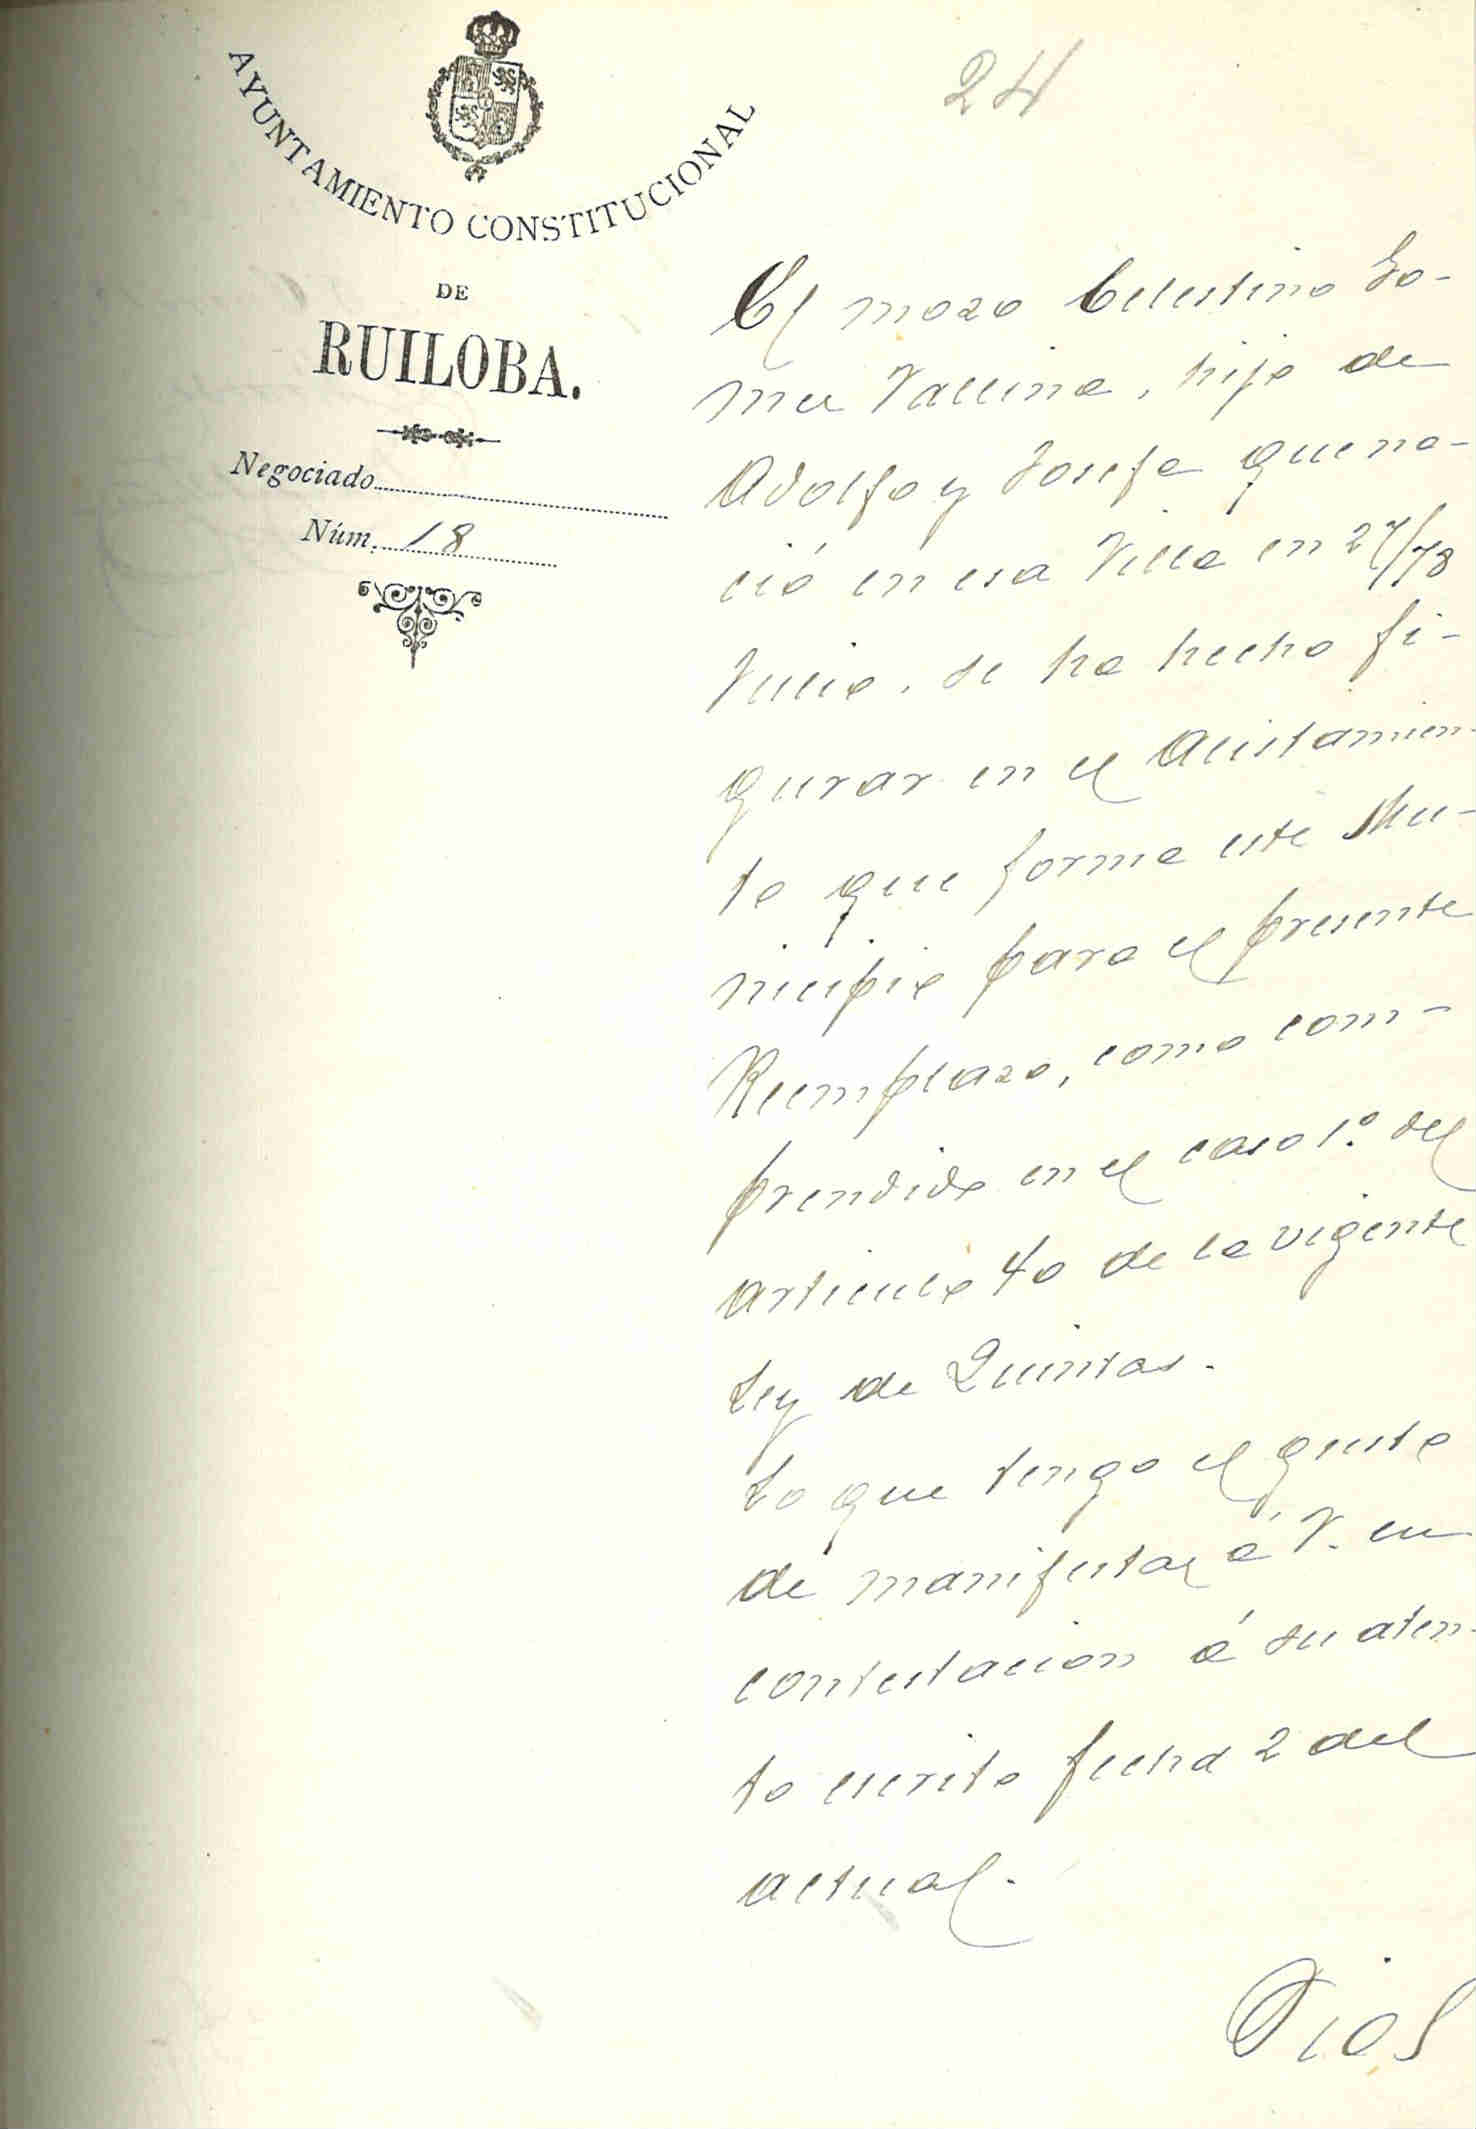 24
AYUNTAMIENTO CONSTITUCIONAL
DE
RUILOBA.
Negociado
Núm. 18
El mozo Celestino Go-
mez Vallina, hijo de
Adolfo y Josefa que na-
ció en esa Villa en 27/78
Julio, se ha hecho fi-
gurar en el Alistamien-
to que forma este Mu-
nicipio para el presente
Reemplazo, como com-
prendido en el caso 1º. del
articulo 40 de la vigente
Ley de Quintas.
Lo que tengo el gusto
de manifestar á V. en
contestacion á su aten-
to escrito fecha 2 del
actual.
Dios